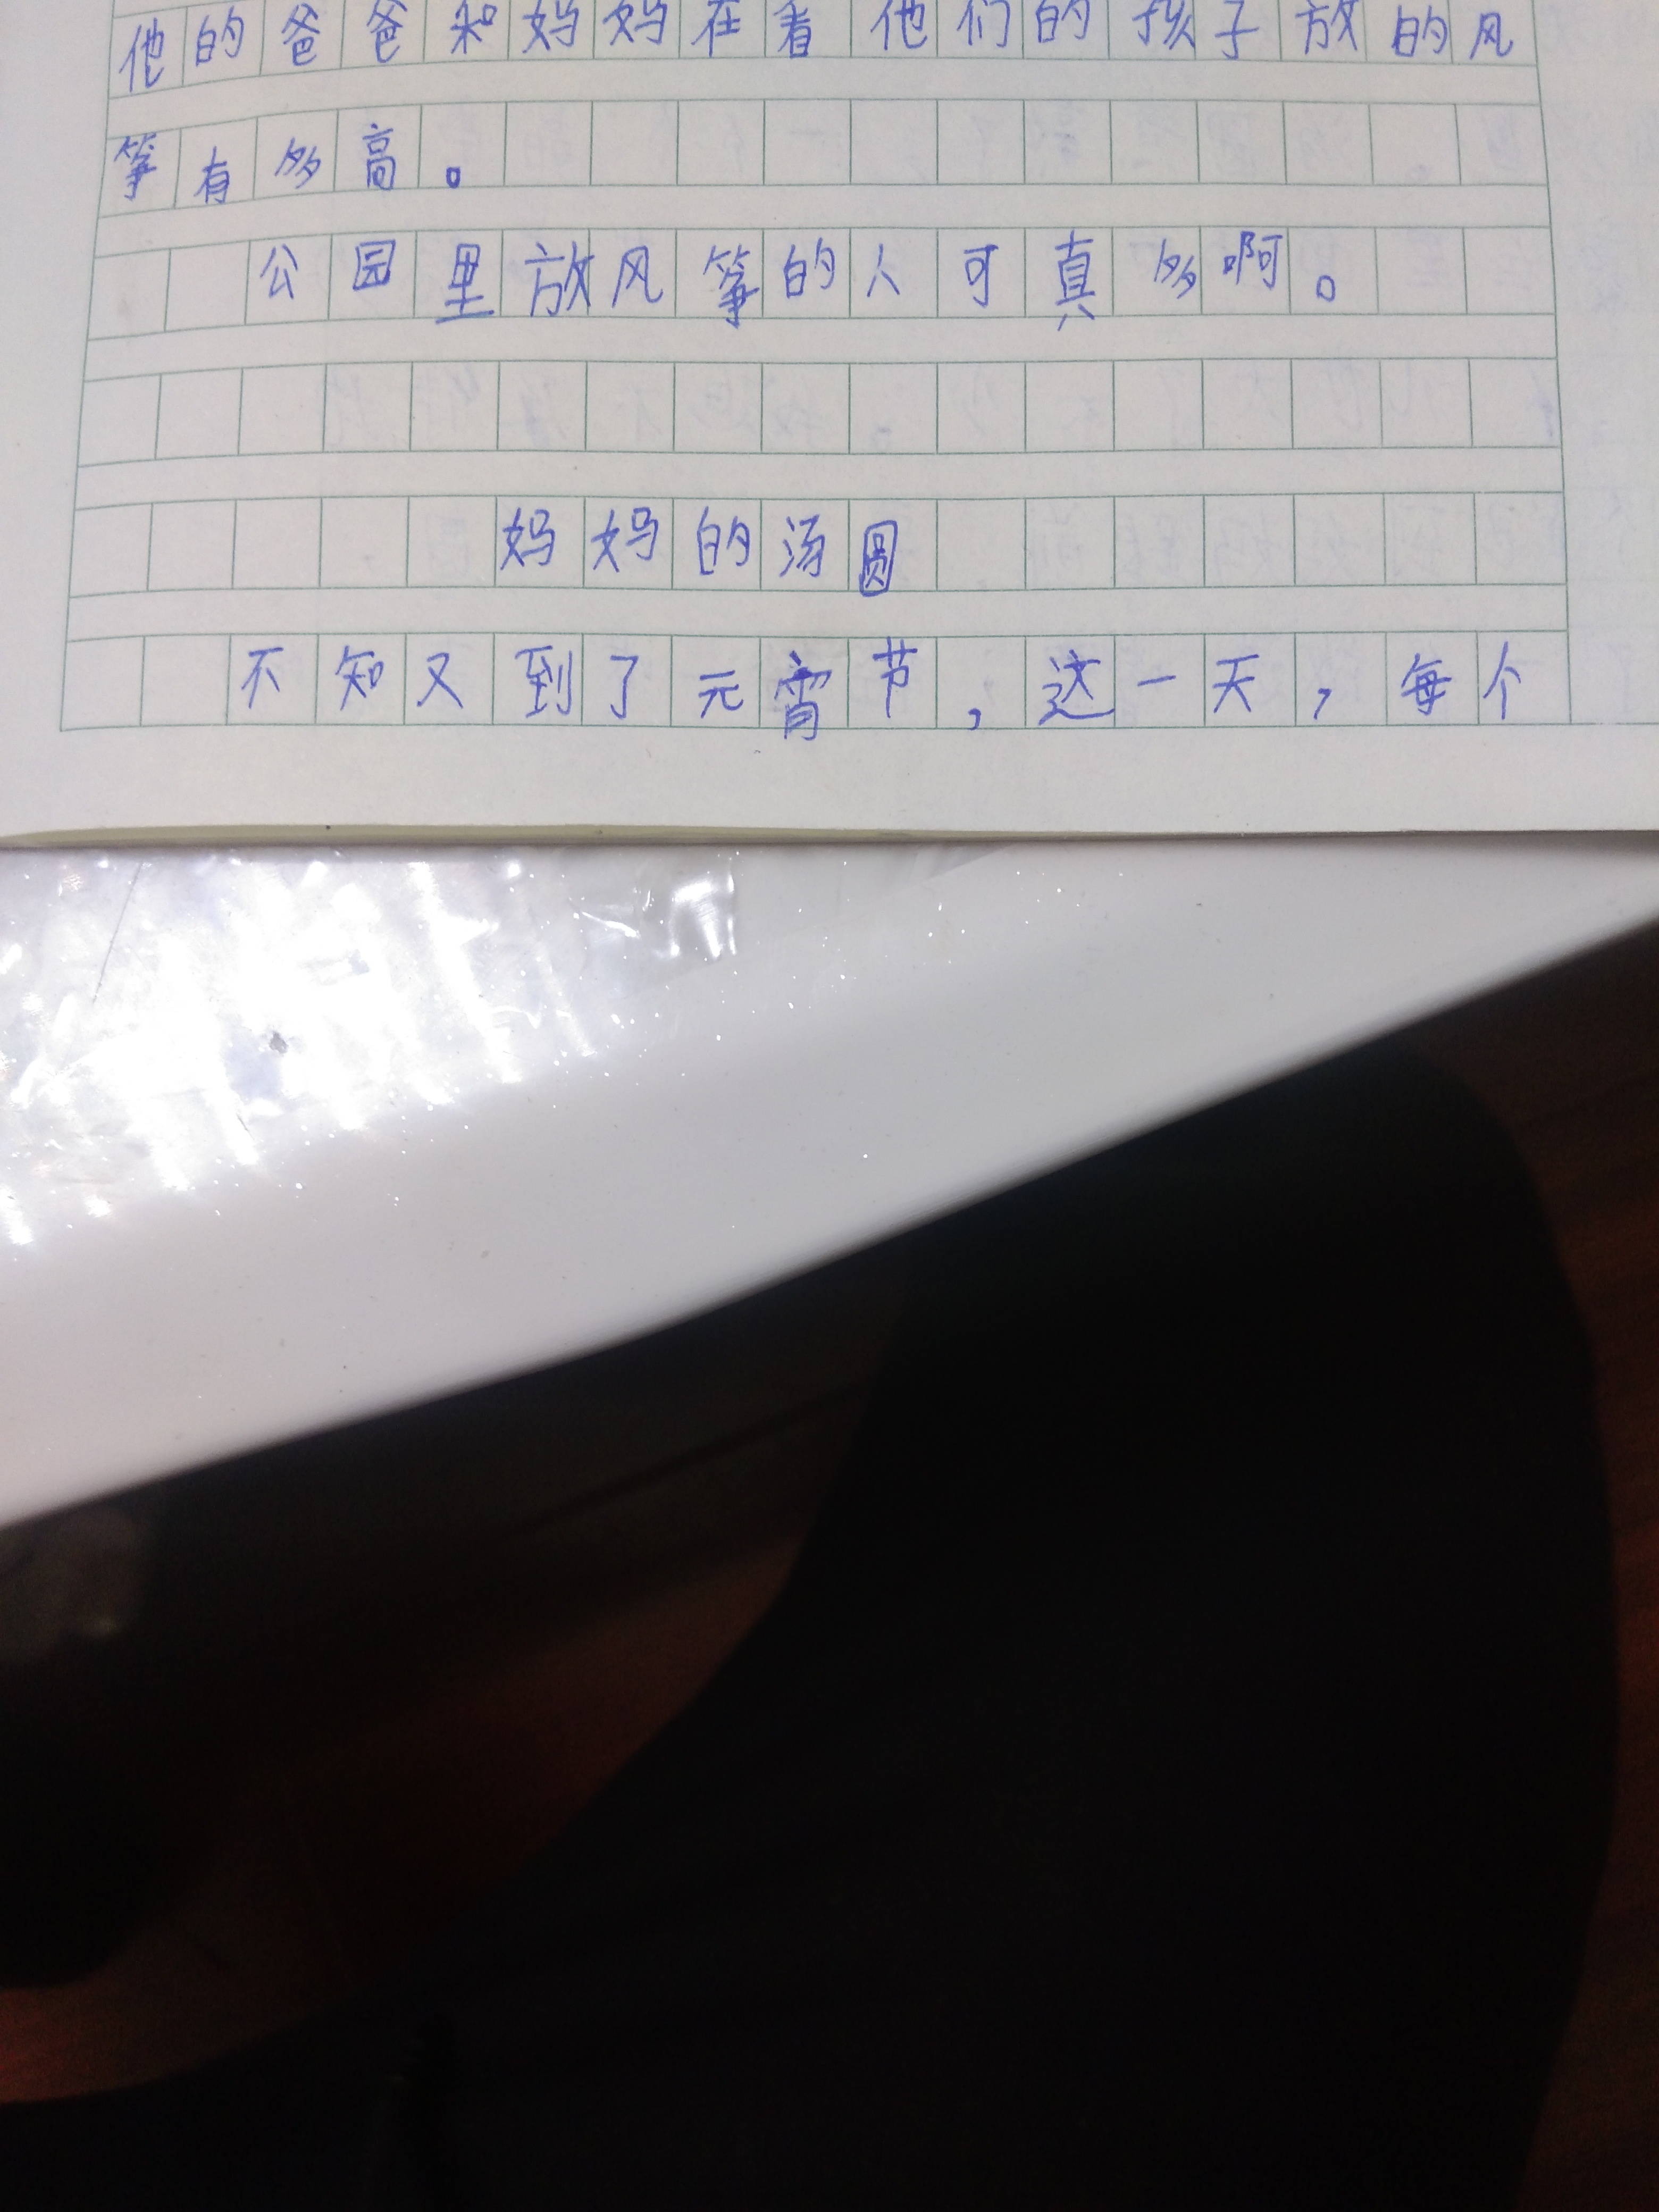 他的爸爸和妈妈在看他们的孩子放的风
筝有多高。
公园里放风筝的人可真多啊。
妈妈的汤圆
不知又到了元宵节，这一天，每个